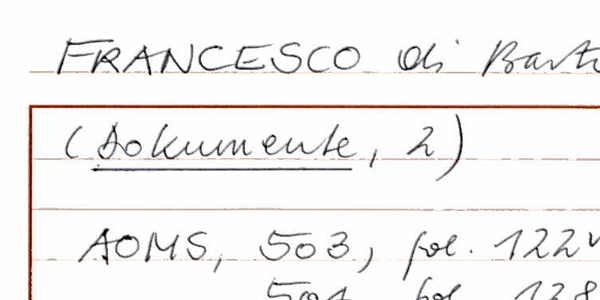 FRANCESCO di
(Dokumente, 2)
AOMS, 503, fol. 122v
fol. 128